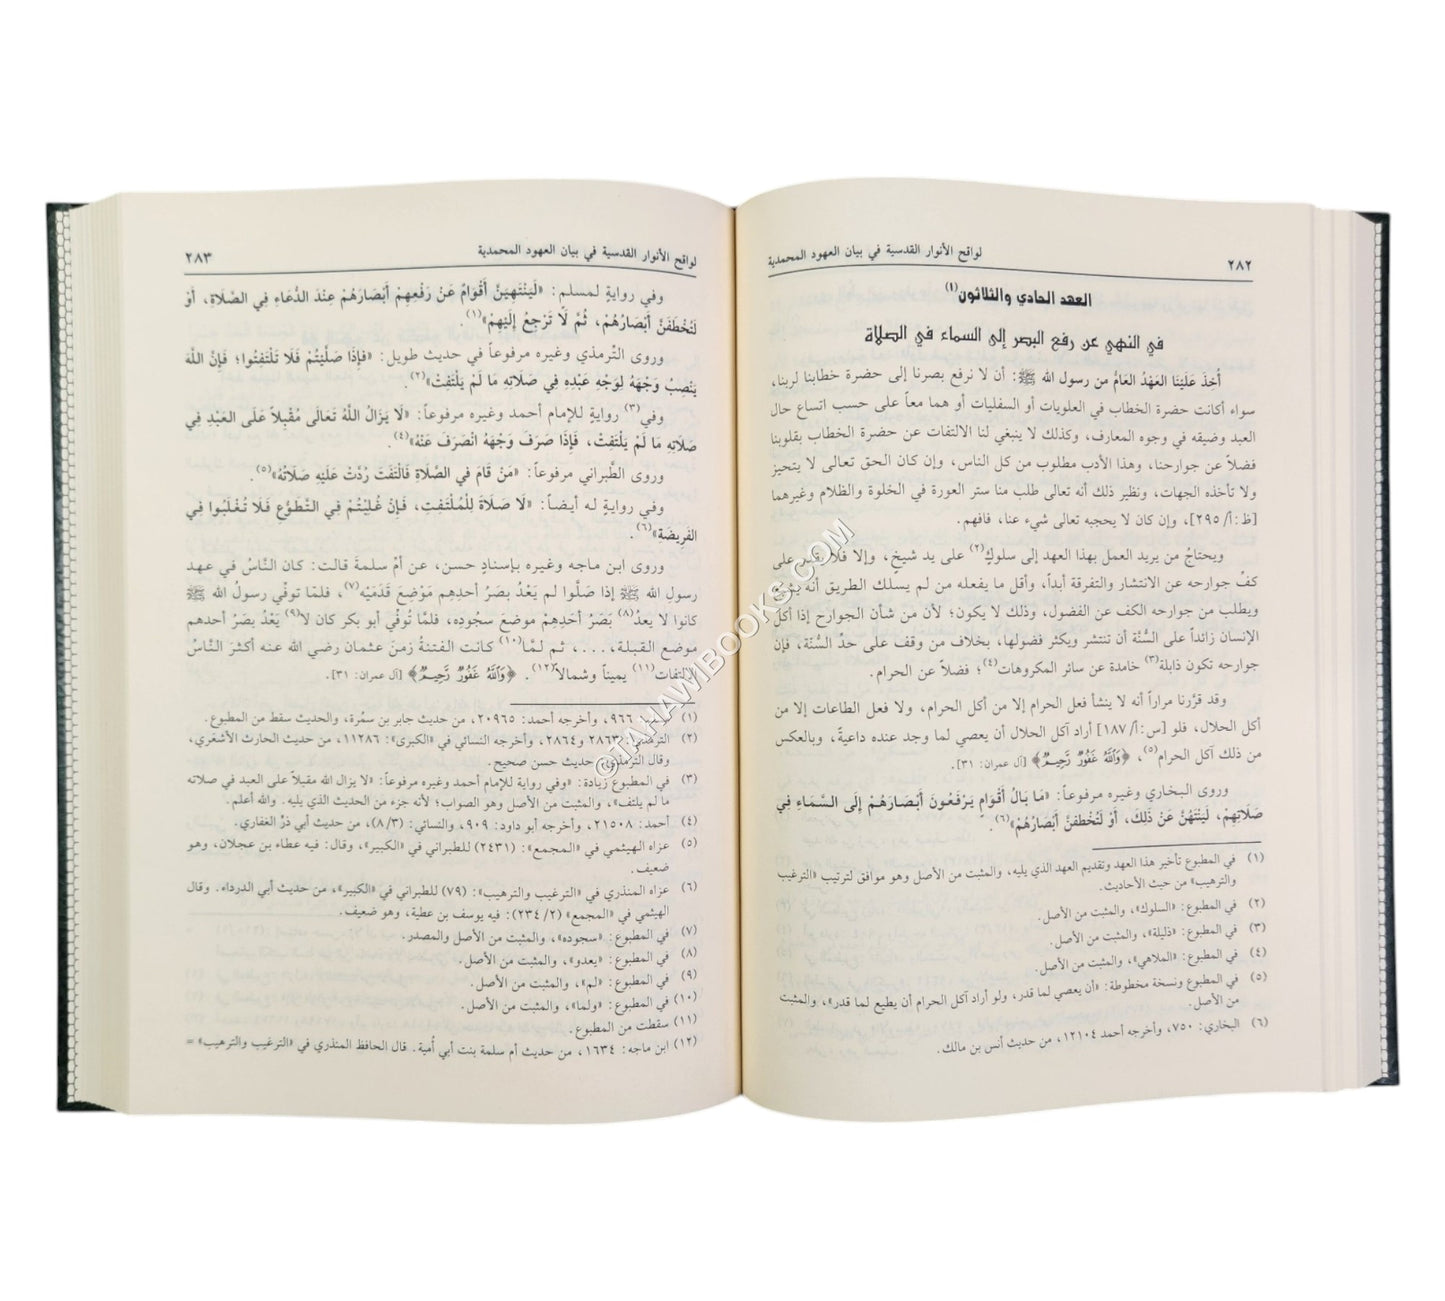 لواقح الأنوار القدسية في بيان العهود المحمدية ٢٨٢
العهد الحادي والثلاثون(١)
في النهي عن رفع البصر إلى السماء في الصلاة
أُخِذَ عَلَينَا العَهْدُ العَامُّ من رسول الله ﷺ: أن لا نرفع بصرنا إلى حضرة خطابنا لربنا،
سواء أكانت حضرة الخطاب في العلويات أو السفليات أو هما معاً على حسب اتساع حال
العبد وضيقه في وجوه المعارف، وكذلك لا ينبغي لنا الالتفات عن حضرة الخطاب بقلوبنا
فضلاً عن جوارحنا، وهذا الأدب مطلوب من كل الناس، وإن كان الحق تعالى لا يتحيز
ولا تأخذه الجهات، ونظير ذلك أنه تعالى طلب منا ستر العورة في الخلوة والظلام وغيرهما
[ظ:أ/٢٩٥]، وإن كان لا يحجبه تعالى شيء عنا، فافهم.
ويحتاجُ من يريد العمل بهذا العهد إلى سلوكٍ(٢) على يد شيخٍ، وإلا فلا يقدر على
كفِّ جوارحه عن الانتشار والتفرقة أبداً، وأقل ما يفعله من لم يسلك الطريق أنه
ويطلب من جوارحه الكف عن الفضول، وذلك لا يكون؛ لأن من شأن الجوارح إذا أكل
الإنسان زائداً على السُّنَّة أن تنتشر ويكثر فضولها، بخلاف من وقف على حدِّ السُّنَّة، فإن
جوارحه تكون ذابلة(٣) خامدة عن سائر المكروهات(٤)؛ فضلاً عن الحرام.
وقد قرَّرنا مراراً أنه لا ينشأ فعل الحرام إلا من أكل الحرام، ولا فعل الطاعات إلا من
أكل الحلال، فلو [س:أ/١٨٧] أراد آكل الحلال أن يعصي لما وجد عنده داعيةً، وبالعكس
من ذلك آكل الحرام(٥)، ﴿وَاللَّهُ غَفُورٌ رَّحِيمٌ﴾ [آل عمران: ٣١].
وروى البخاري وغيره مرفوعاً: «مَا بَالُ أَقْوَامٍ يَرْفَعُونَ أَبْصَارَهُمْ إِلَى السَّمَاءِ فِي
صَلَاتِهِمْ، لَيَنْتَهُنَّ عَنْ ذَلِكَ، أَوْ لَتُخْطَفَنَّ أَبْصَارُهُمْ»(٦).
(١) في المطبوع تأخير هذا العهد وتقديم العهد الذي يليه، والمثبت من الأصل وهو موافق لترتيب «الترغيب
والترهيب» من حيث الأحاديث.
(٢) في المطبوع: «السلوك»، والمثبت من الأصل.
(٣) في المطبوع: «ذليلة»، والمثبت من الأصل.
(٤) في المطبوع: «الملاهي»، والمثبت من الأصل.
(٥) في المطبوع ونسخة مخطوطة: «أن يعصي لما قدر، ولو أراد آكل الحرام أن يطيع لما قدر»، والمثبت
من الأصل.
(٦) البخاري: ٧٥٠، وأخرجه أحمد ١٢١٠٤، من حديث أنس بن مالك.
لواقح الأنوار القدسية في بيان العهود المحمدية ٢٨٣
وفي روايةٍ لمسلم: «لَيَنْتَهِيَنَّ أَقْوَامٌ عَنْ رَفْعِهِمْ أَبْصَارَهُمْ عِنْدَ الدُّعَاءِ فِي الصَّلَاةِ، أَوْ
لَتُخْطَفَنَّ أَبْصَارُهُمْ، ثُمَّ لَا تَرْجِعُ إِلَيْهِمْ»(١).
وروى التِّرمذي وغيره مرفوعاً في حديث طويل: «فَإِذَا صَلَّيْتُمْ فَلَا تَلْتَفِتُوا؛ فَإِنَّ اللَّهَ
يَنْصِبُ وَجْهَهُ لِوَجْهِ عَبْدِهِ فِي صَلَاتِهِ مَا لَمْ يَلْتَفِتْ»(٢).
وفي(٣) روايةٍ للإمام أحمد وغيره مرفوعاً: «لَا يَزَالُ اللَّهُ تَعَالَى مُقْبِلاً عَلَى العَبْدِ فِي
صَلَاتِهِ مَا لَمْ يَلْتَفِتْ، فَإِذَا صَرَفَ وَجْهَهُ انْصَرَفَ عَنْهُ»(٤).
وروى الطَّبراني مرفوعاً: «مَنْ قَامَ فِي الصَّلَاةِ فَالْتَفَتَ رُدَّتْ عَلَيْهِ صَلَاتُهُ»(٥).
وفي روايةٍ له أيضاً: «لَا صَلَاةَ لِلْمُلْتَفِتِ، فَإِنْ غُلِبْتُمْ فِي التَّطَوُّعِ فَلَا تُغْلَبُوا فِي
الفَرِيضَةِ»(٦).
وروى ابن ماجه وغيره بإسنادٍ حسن، عن أمِّ سلمة قالت: كان النَّاسُ في عهد
رسولِ الله ﷺ إذا صَلَّوا لم يَعْدُ بصرُ أحدِهم مَوْضِعَ قَدَمَيْه(٧)، فلمَّا توفِّي رسولُ الله ﷺ
كانوا لا يعدُ(٨) بَصَرُ أَحَدِهِمْ موضعَ سجُودِه، فلمَّا تُوفِّيَ أبو بكر كان لا(٩) يَعْدُ بَصَرُ أحدهم
موضع القبلة،...، ثم لمَّا(١٠) كانت الفتنةُ زمنَ عثمان رضي الله عنه أكثرَ النَّاسُ
الالتفات(١١) يميناً وشمالاً(١٢). ﴿وَاللَّهُ غَفُورٌ رَّحِيمٌ﴾ [آل عمران: ٣١].
(١) ٩٦٦، وأخرجه أحمد: ٢٠٩٦٥، من حديث جابر بن سمُرة، والحديث سقط من المطبوع.
(٢) الترمذي: ٢٨٦٣ و٢٨٦٤، وأخرجه النسائي في «الكبرى»: ١١٢٨٦، من حديث الحارث الأشعري،
وقال الترمذي: حديث حسن صحيح.
(٣) في المطبوع زيادة: «وفي رواية للإمام أحمد وغيره مرفوعاً: «لا يزال الله مقبلاً على العبد في صلاته
ما لم يلتف»، والمثبت من الأصل وهو الصواب؛ لأنه جزء من الحديث الذي يليه. والله أعلم.
(٤) أحمد: ٢١٥٠٨، وأخرجه أبو داود: ٩٠٩، والنسائي: (٨/٣)، من حديث أبي ذرٍّ الغفاري.
(٥) عزاه الهيثمي في «المجمع»: (٢٤٣١) للطبراني في «الكبير»، وقال: فيه عطاء بن عجلان، وهو
ضعيف.
(٦) عزاه المنذري في «الترغيب والترهيب»: (٧٩) للطبراني في «الكبير»، من حديث أبي الدرداء. وقال
الهيثمي في «المجمع» (٢٣٤/٢): فيه يوسف بن عطية، وهو ضعيف.
(٧) في المطبوع: «سجوده»، والمثبت من الأصل والمصدر.
(٨) في المطبوع: «يعدو»، والمثبت من الأصل.
(٩) في المطبوع: «لم»، والمثبت من الأصل.
(١٠) في المطبوع: «ولما»، والمثبت من الأصل.
(١١) سقطت من المطبوع.
(١٢) ابن ماجه: ١٦٣٤، من حديث أم سلمة بنت أبي أمية. قال الحافظ المنذري في «الترغيب والترهيب» =
©TAHAWIBOOKS.COM